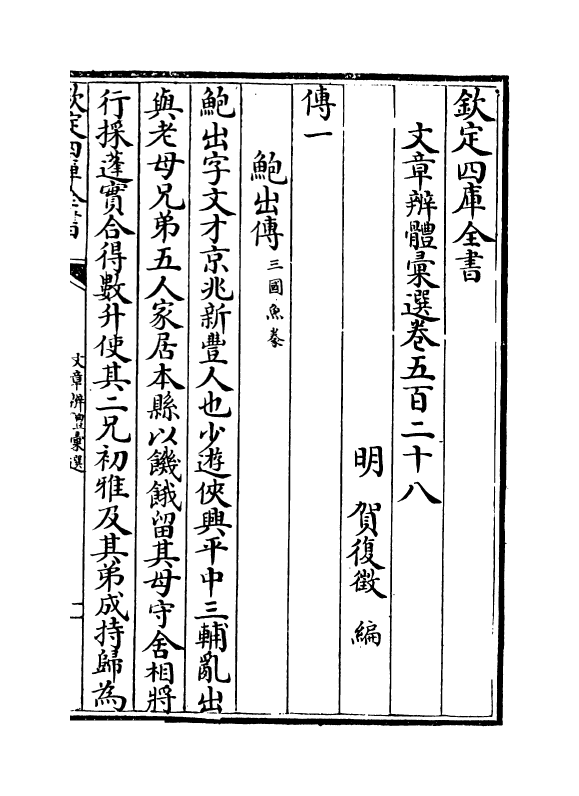 欽定四庫全書
文章辨體彚選卷五百二十八
明　賀復徵　編
傳一
鮑出傳三國魚豢
鮑出字文才京兆新豐人也少遊俠興平中三輔亂出
與老母兄弟五人家居本縣以饑餓留其母守舍相將
行採蓬實合得數升使其二兄初雅及其弟成持歸為
欽定四庫全書
文章辨體彚選